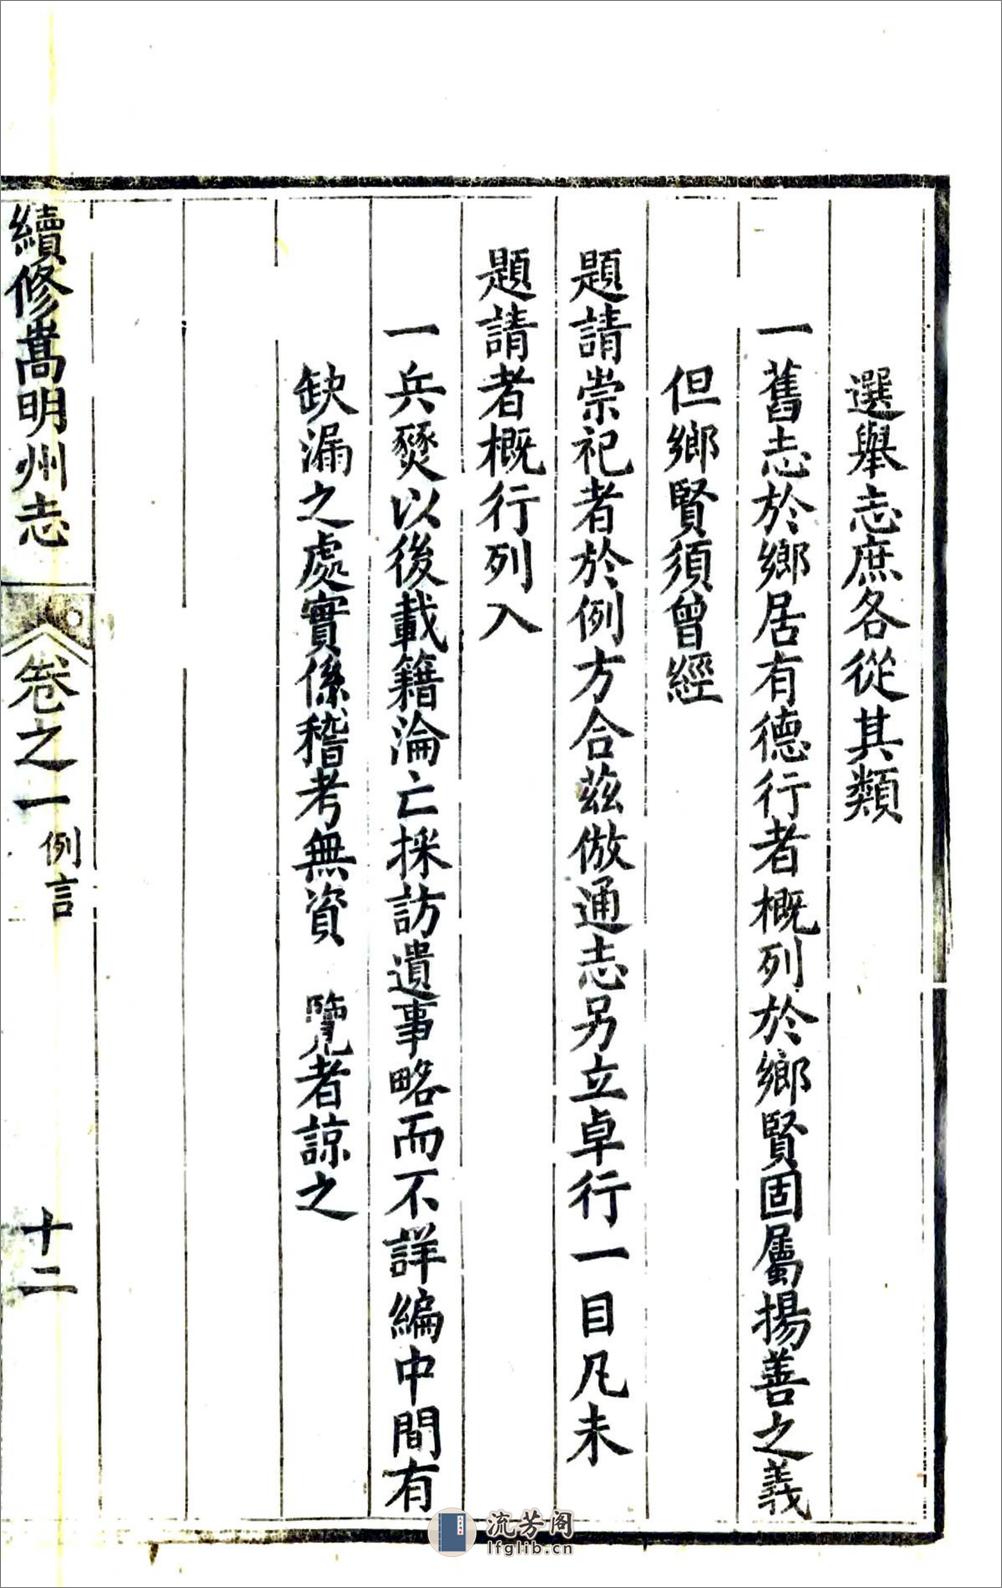 選舉志庶各從其類
一舊志於鄉居有德行者概列於鄉賢固屬揚善之義
但鄉賢須曾經
題請崇祀者於例方合茲倣通志另立卓行一目凡未
題請者概行列入
一兵燹以後載籍淪亡採訪遺事略而不詳編中間有
缺漏之處實係稽考無資 覽者諒之
續修嵩明州志
卷之一 例言
十二
流芳阁
lfglib.cn